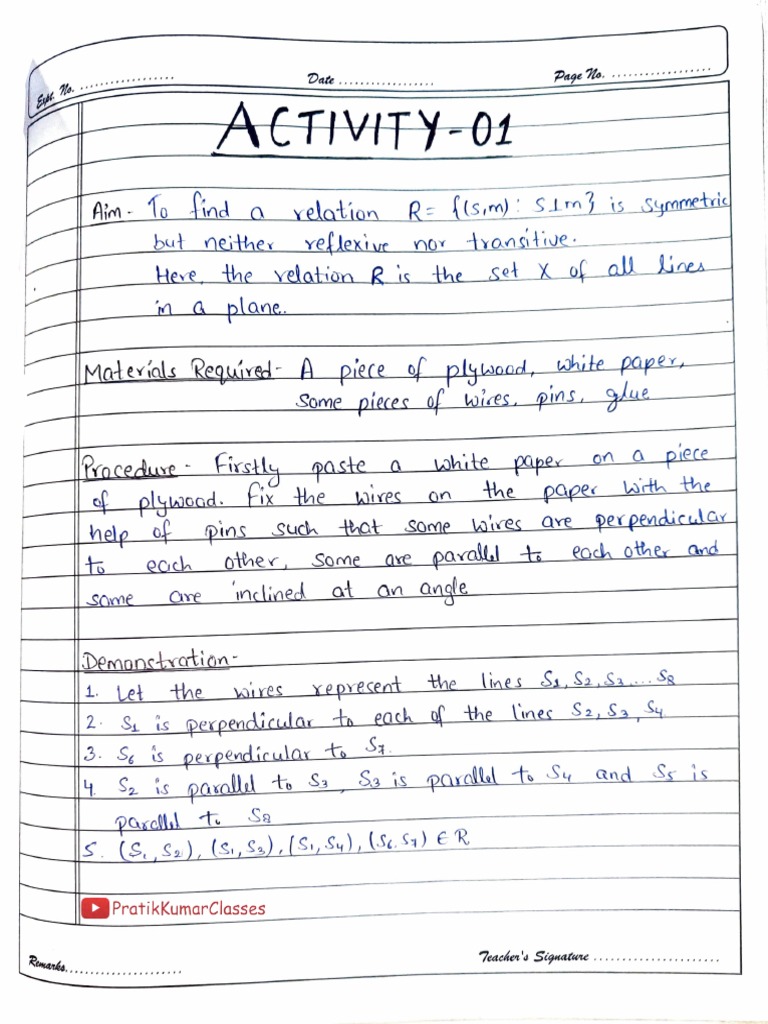 Expt. No. ..................
Date ..................
Page No. ...................
ACTIVITY-01
Aim - To find a relation R= {(S,m) : S⊥m} is symmetric
but neither reflexive nor transitive.
Here, the relation R is the set X of all lines
in a plane.
Materials Required- A piece of plywood, white paper,
Some pieces of wires, pins, glue
Procedure - Firstly paste a white paper on a piece
of plywood. Fix the wires on the paper with the
help of pins such that some wires are perpendicular
to each other, some are parallel to each other and
some are inclined at an angle
Demonstration-
1. Let the wires represent the lines S1, S2, S3....S8
2. S1 is perpendicular to each of the lines S2, S3, S4
3. S6 is perpendicular to S7.
4. S2 is parallel to S3, S3 is parallel to S4 and S5 is
parallel to S8
5. (S1, S2), (S1, S3), (S1, S4), (S6, S7) ∈ R
PratikKumarClasses
Remarks......................
Teacher's Signature ......................